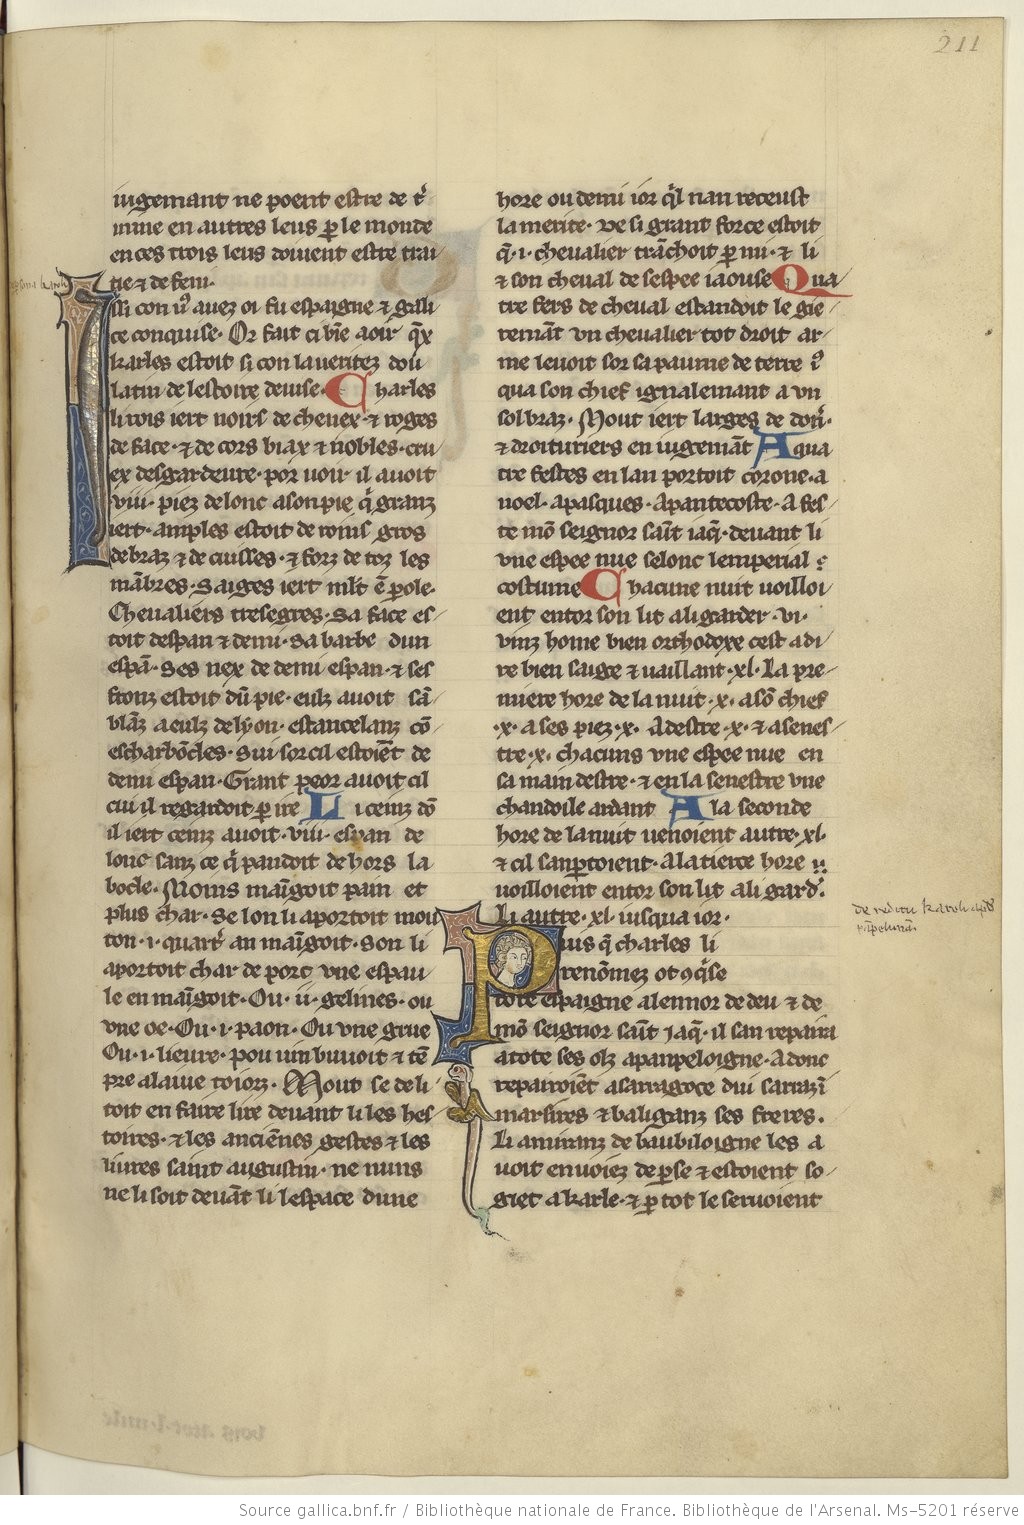 211
iugemant ne poent estre de t᷑
mine en autres leus ꝑ le monde
en ces trois leus doiuent estre trai
tie ⁊ defeni.
Issi con uꝰ auez oi fu espaigne ⁊ gali
ce conquise. Or fait ci bīe aoir q̄x
karles estoit si con la ueritez dou
latin de lestoire deuise. Charles
li rois iert noirs de cheuex. ⁊ roges
de face. ⁊ de cors biax ⁊ nobles. cru
ex desgardeure. por uoir il auoit
viii. piez de lonc a son pie q̍ granz
iert. amples estoit de roins gros
de braz ⁊ de cuisses. ⁊ forz de toz les
mābres. saiges iert mlt ē ꝑole.
Cheualiers tresegres. Sa face es
toit despan ⁊ demi. Sa barbe dun
espā. Ses nex de demi espan. ⁊ ses
fronz estoit dū pie. eulz auoit sā
blāz a eulz de lyon. estancelanz cō
escharbōcles. Sui sorcil estoiēt de
demi espan. Grant peor auoit cil
cui il regardoit ꝑ ire Li ceinz dō
il iert ceinz auoit. viii. espan de
lonc sanz ce q̍ pandoit de hors la
bocle. Moins maīgoit pain et
plus char. Se lon li aportoit mou
ton. i. quart᷑ an maīgoit. Son li
aportoit char de porc vne espau
le en maīgoit. Ou. ii. gelines. ou
vne oe. Ou. i. paon. Ou vne grue
Ou. i. lieure. pou uin buuoit ⁊ tē
pre a laiue toiorz. Mout se deli
toit en faire lire deuant li les hes
toires. ⁊ les anciēnes gestes ⁊ les
liures saint augustin. ne nuns
ne li soit deuāt li lespace dune
hore ou demi ior q̍l nan receust
la merite. De si grant force estoit
q̄. i. cheualier trāchoit ꝑ mi. ⁊ li
⁊ son cheual de sespee iaouse Qua
tre fers de cheual estandoit legie
remāt vn cheualier tot droit ar
me leuoit sor sa paume de terre iꝰ
qua son chief ignalemant a vn
sol braz. Mout iert larges de don᷑.
⁊ droituriers en iugemāt A qua
tre festes en lan portoit corone. a
noel. a pasques. a pantecoste. a fes
te mō seignor saīt iaq̄. deuant li
vne espee nue selonc lemperial
costume Chacune nuit uoilloi
ent entor son lit a li garder. vi.
vinz home bien orthodoxe cest a di
re bien saige ⁊ uaillant. xl. La pre
miere hore de la nuit. x. a sō chief
.x. a ses piez. x. A destre. x. ⁊ a senes
tre. x. chacuns vne espee nue en
sa main destre. ⁊ en la senestre vne
chandoile ardant A la seconde
hore de la nuit uenoient autre. xl.
⁊ cil sanꝑtoient. A la tierce hore
uoilloient entor son lit a li gard᷑.
Li autre. xl. iusqua ior.
Puis q̄ charles li
renōmez ot ꝯq̍se
tote espaigne a lennor de deu ⁊ de
mō seignor saīt iaq̄. il san repaira
a tote ses olz a panpeloigne. Adonc
repairoiēt a sarragoce dui sarrazī
marsires ⁊ baliganz ses freres.
Li amiranz de baubiloigne les a
uoit enuoiez de ꝑse ⁊ estoient so
giet a karle. ⁊ ꝑ tot le seruoient
de reditu karoli apud
Source gallica.bnf.fr / Bibliothèque nationale de France. Bibliothèque de l'Arsenal. Ms-5201 réserve